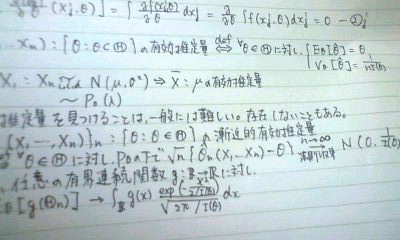 (X_j, θ)] = ∫ ∂f(x_j, θ)/∂θ dx_j = ∂/∂θ ∫f(x_j, θ)dx_j = 0 - ①
X_n) : {θ : θ∈Ⓗ} の有効推定量 def⇔ ∀θ∈Ⓗ に対し、{ E_θ[θ̂] = θ
V_θ[θ̂] = 1/nI(θ)
X_1 … X_n i.i.d. N(μ, σ²) ⇒ X̄ : μ の有効推定量
~ Po(λ)
推定量を見つけることは、一般には難しい。存在しないこともある。
{X_1, …, X_n)}_n : {θ : θ∈Ⓗ} の漸近的有効推定量
∀θ∈Ⓗ に対し、P_θ の下で √n {θ̂_n(X_1, … X_n) - θ} n→∞ N(0, 1/I(θ)
任意の有界連続関数 g : R→R に対し、
E_θ[g(Ⓗ_n)] → ∫_R g(x) exp(-x²/2/I(θ)) / √2π/I(θ) dx